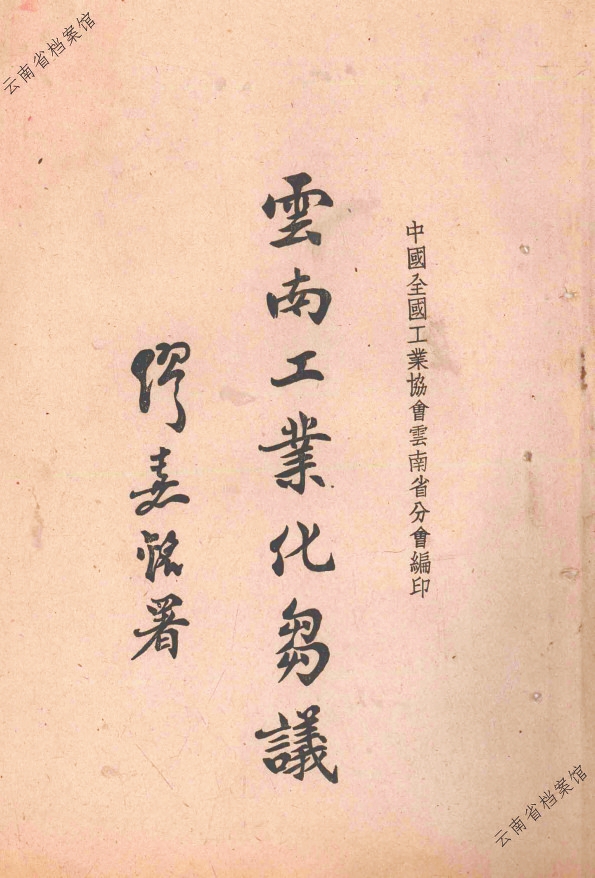 云南省档案馆
中國全國工業協會雲南省分會編印
雲南工業化芻議
繆嘉銘署
云南省档案馆